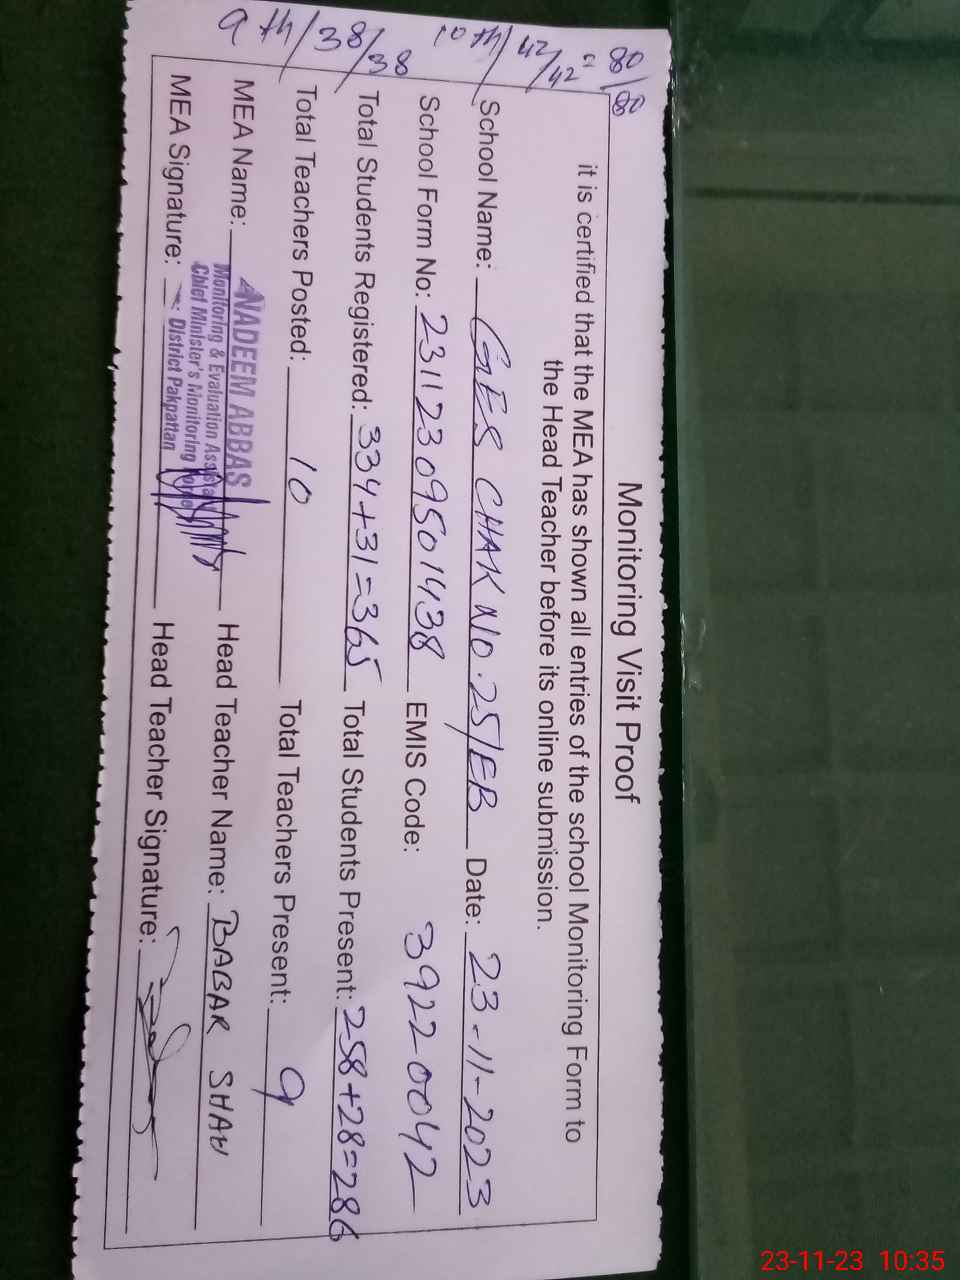 9th/38/38 10th/42/42 = 80/80
Monitoring Visit Proof
it is certified that the MEA has shown all entries of the school Monitoring Form to
the Head Teacher before its online submission.
School Name: GES CHAK NO. 25/EB Date: 23-11-2023
School Form No: 23112309501438 EMIS Code: 39220042
Total Students Registered: 334+31=365 Total Students Present: 258+28=286
Total Teachers Posted: 10 Total Teachers Present: 9
MEA Name: NADEEM ABBAS Head Teacher Name: BABAR SHAH
Monitoring & Evaluation Assistant
Chief Minister's Monitoring Force
District Pakpattan
MEA Signature: Head Teacher Signature:
23-11-23 10:35